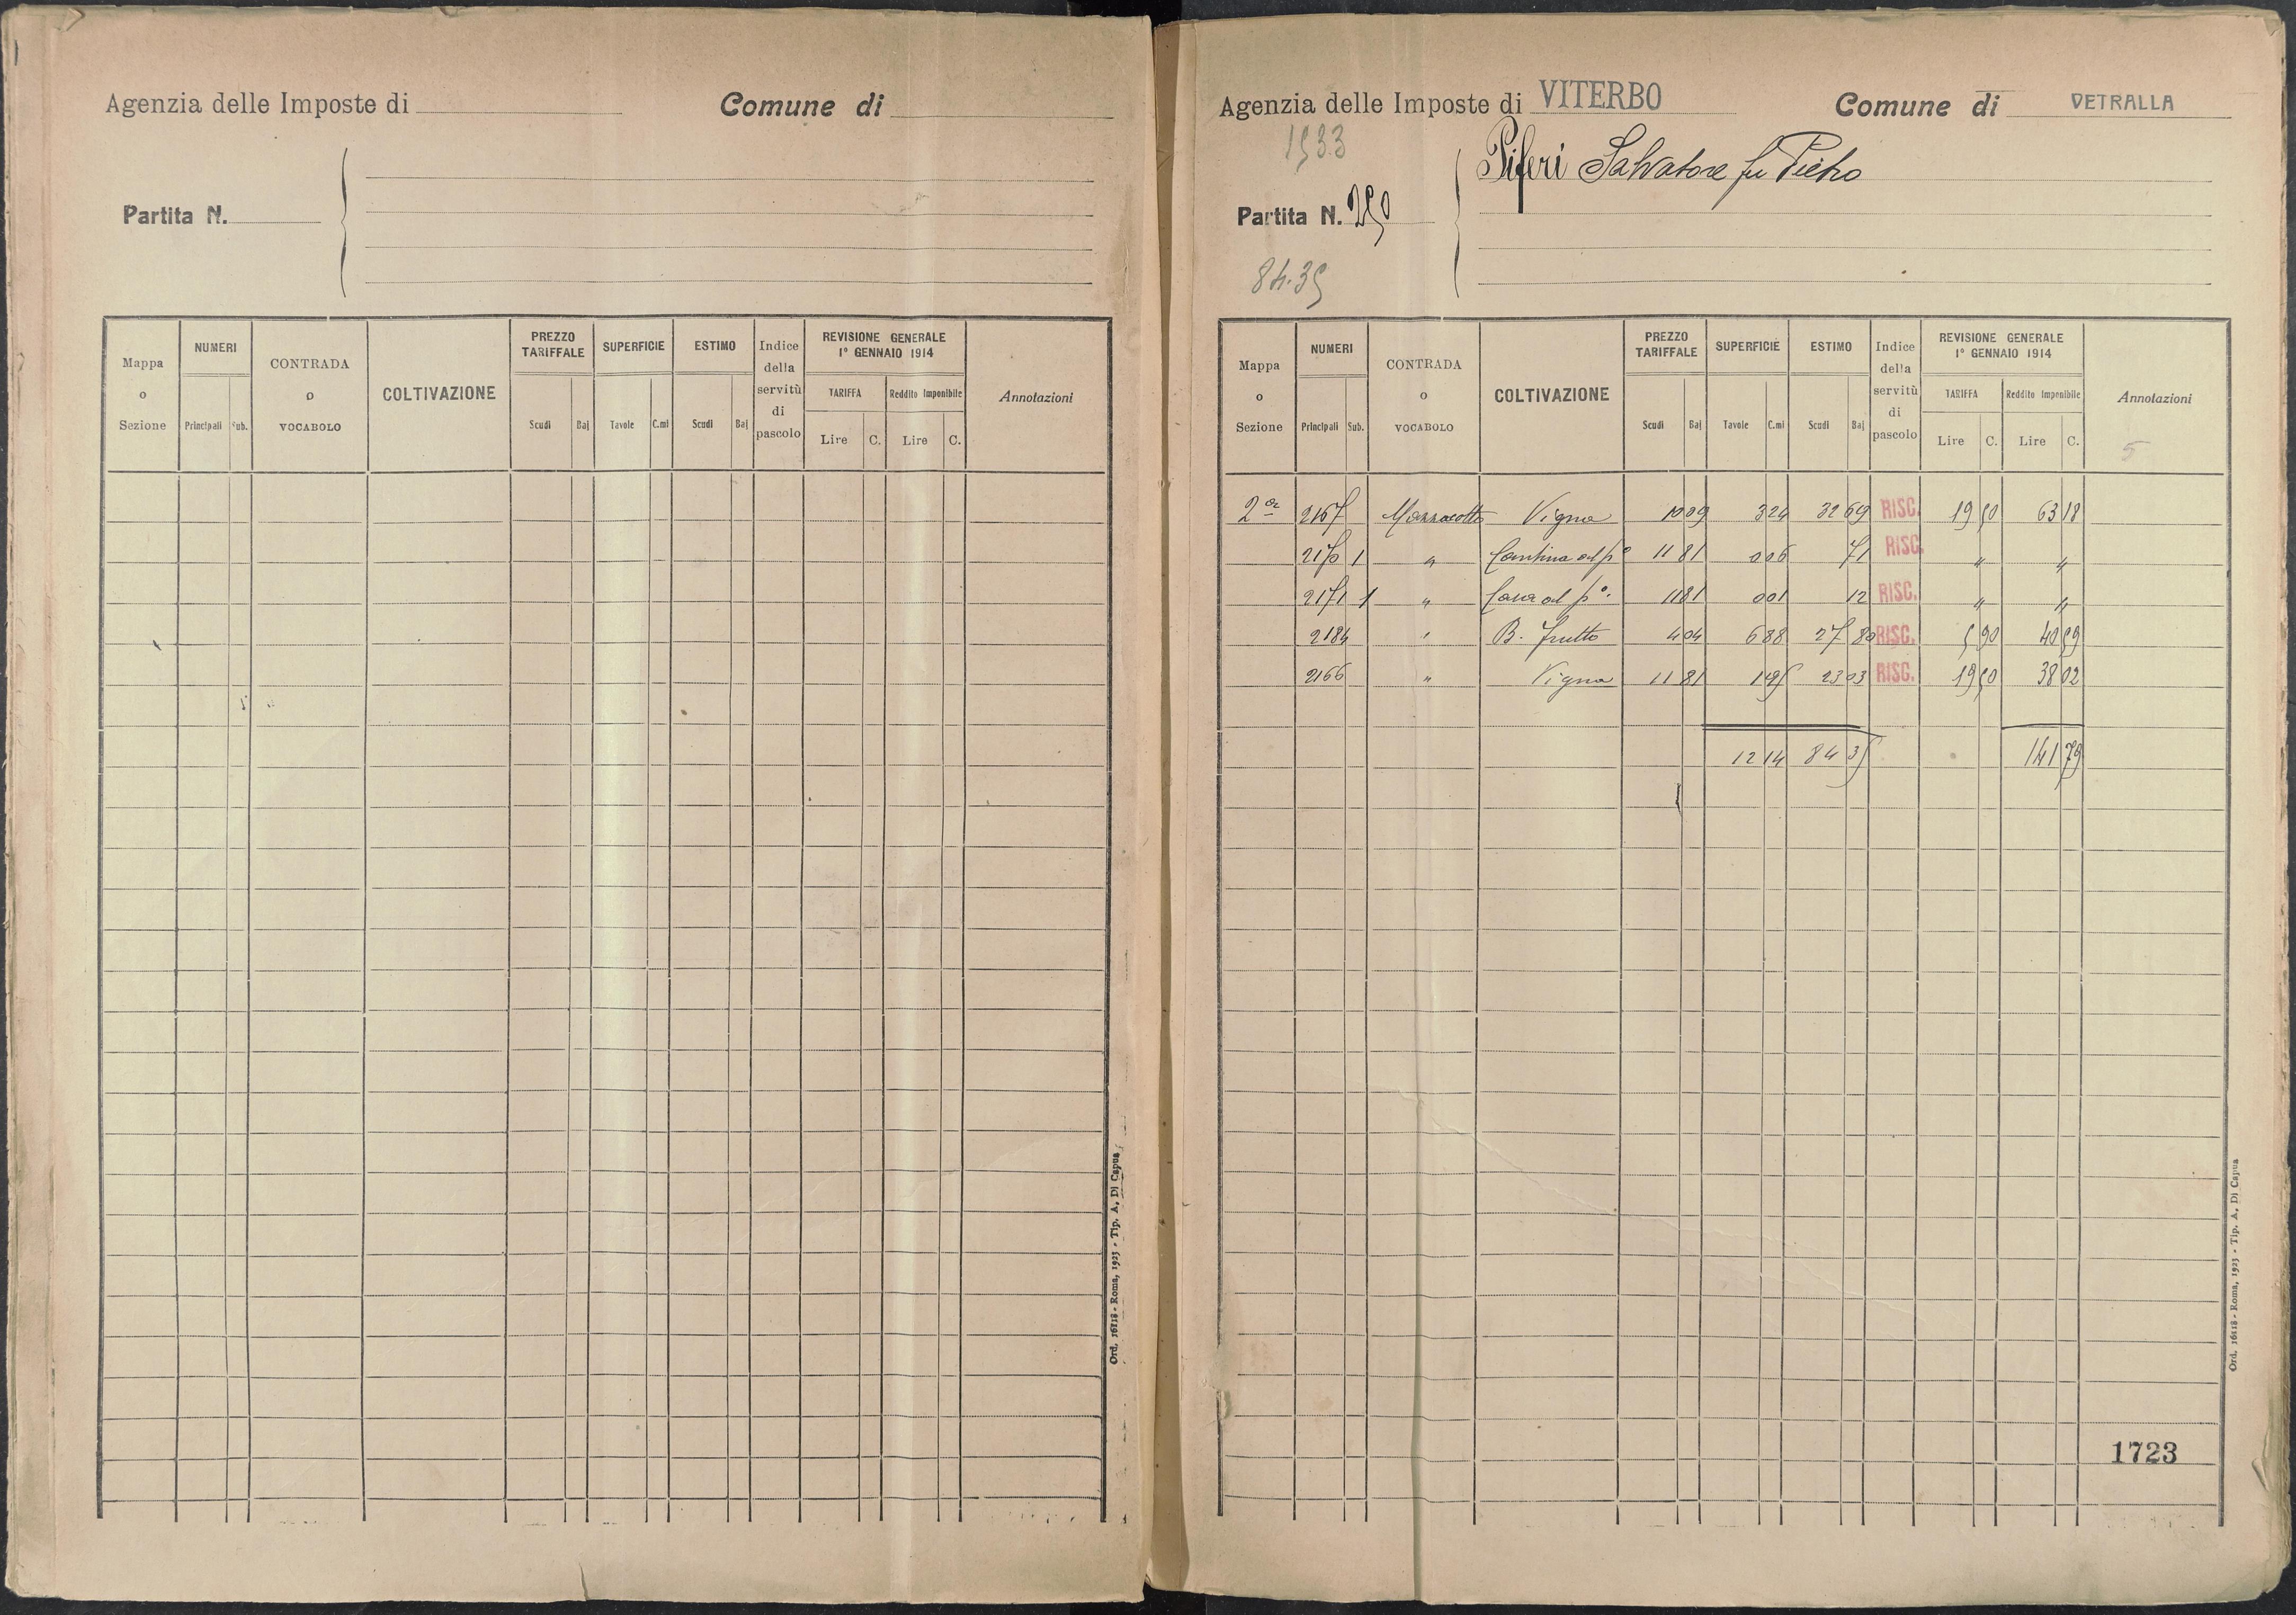 Agenzia delle Imposte di Comune di
Partita N.
Mappa o Sezione NUMERI Principali Sub. CONTRADA o VOCABOLO COLTIVAZIONE PREZZO TARIFFALE Scudi Baj SUPERFICIE Tavole C.mi ESTIMO Scudi Baj Indice della servitù di pascolo REVISIONE GENERALE 1º GENNAIO 1914 TARIFFA Lire C. Reddito Imponibile Lire C. Annotazioni
Ord. 16118 - Roma, 1923 - Tip. A. Di Capua
Agenzia delle Imposte di VITERBO Comune di VETRALLA
1533
Piferi Salvatore fu Pietro
Partita N. 250
84.35
Mappa o Sezione NUMERI Principali Sub. CONTRADA o VOCABOLO COLTIVAZIONE PREZZO TARIFFALE Scudi Baj SUPERFICIE Tavole C.mi ESTIMO Scudi Baj Indice della servitù di pascolo REVISIONE GENERALE 1º GENNAIO 1914 TARIFFA Lire C. Reddito Imponibile Lire C. Annotazioni
5
2ª 2167 Mazzacotto Vigna 10 09 3 24 32 69 RISC. 19 50 63 18
2170 1 " Cantina al pº 11 81 0 06 71 RISC. " "
2171 1 " Casa al pº. 11 81 0 01 12 RISC. " "
2184 " B. frutto 4 04 6 88 27 80 RISC. 5 90 40 59
2166 " Vigna 11 81 1 95 23 03 RISC. 19 50 38 02
12 14 84 35 141 79
1723
Ord. 16118 - Roma, 1923 - Tip. A. Di Capua